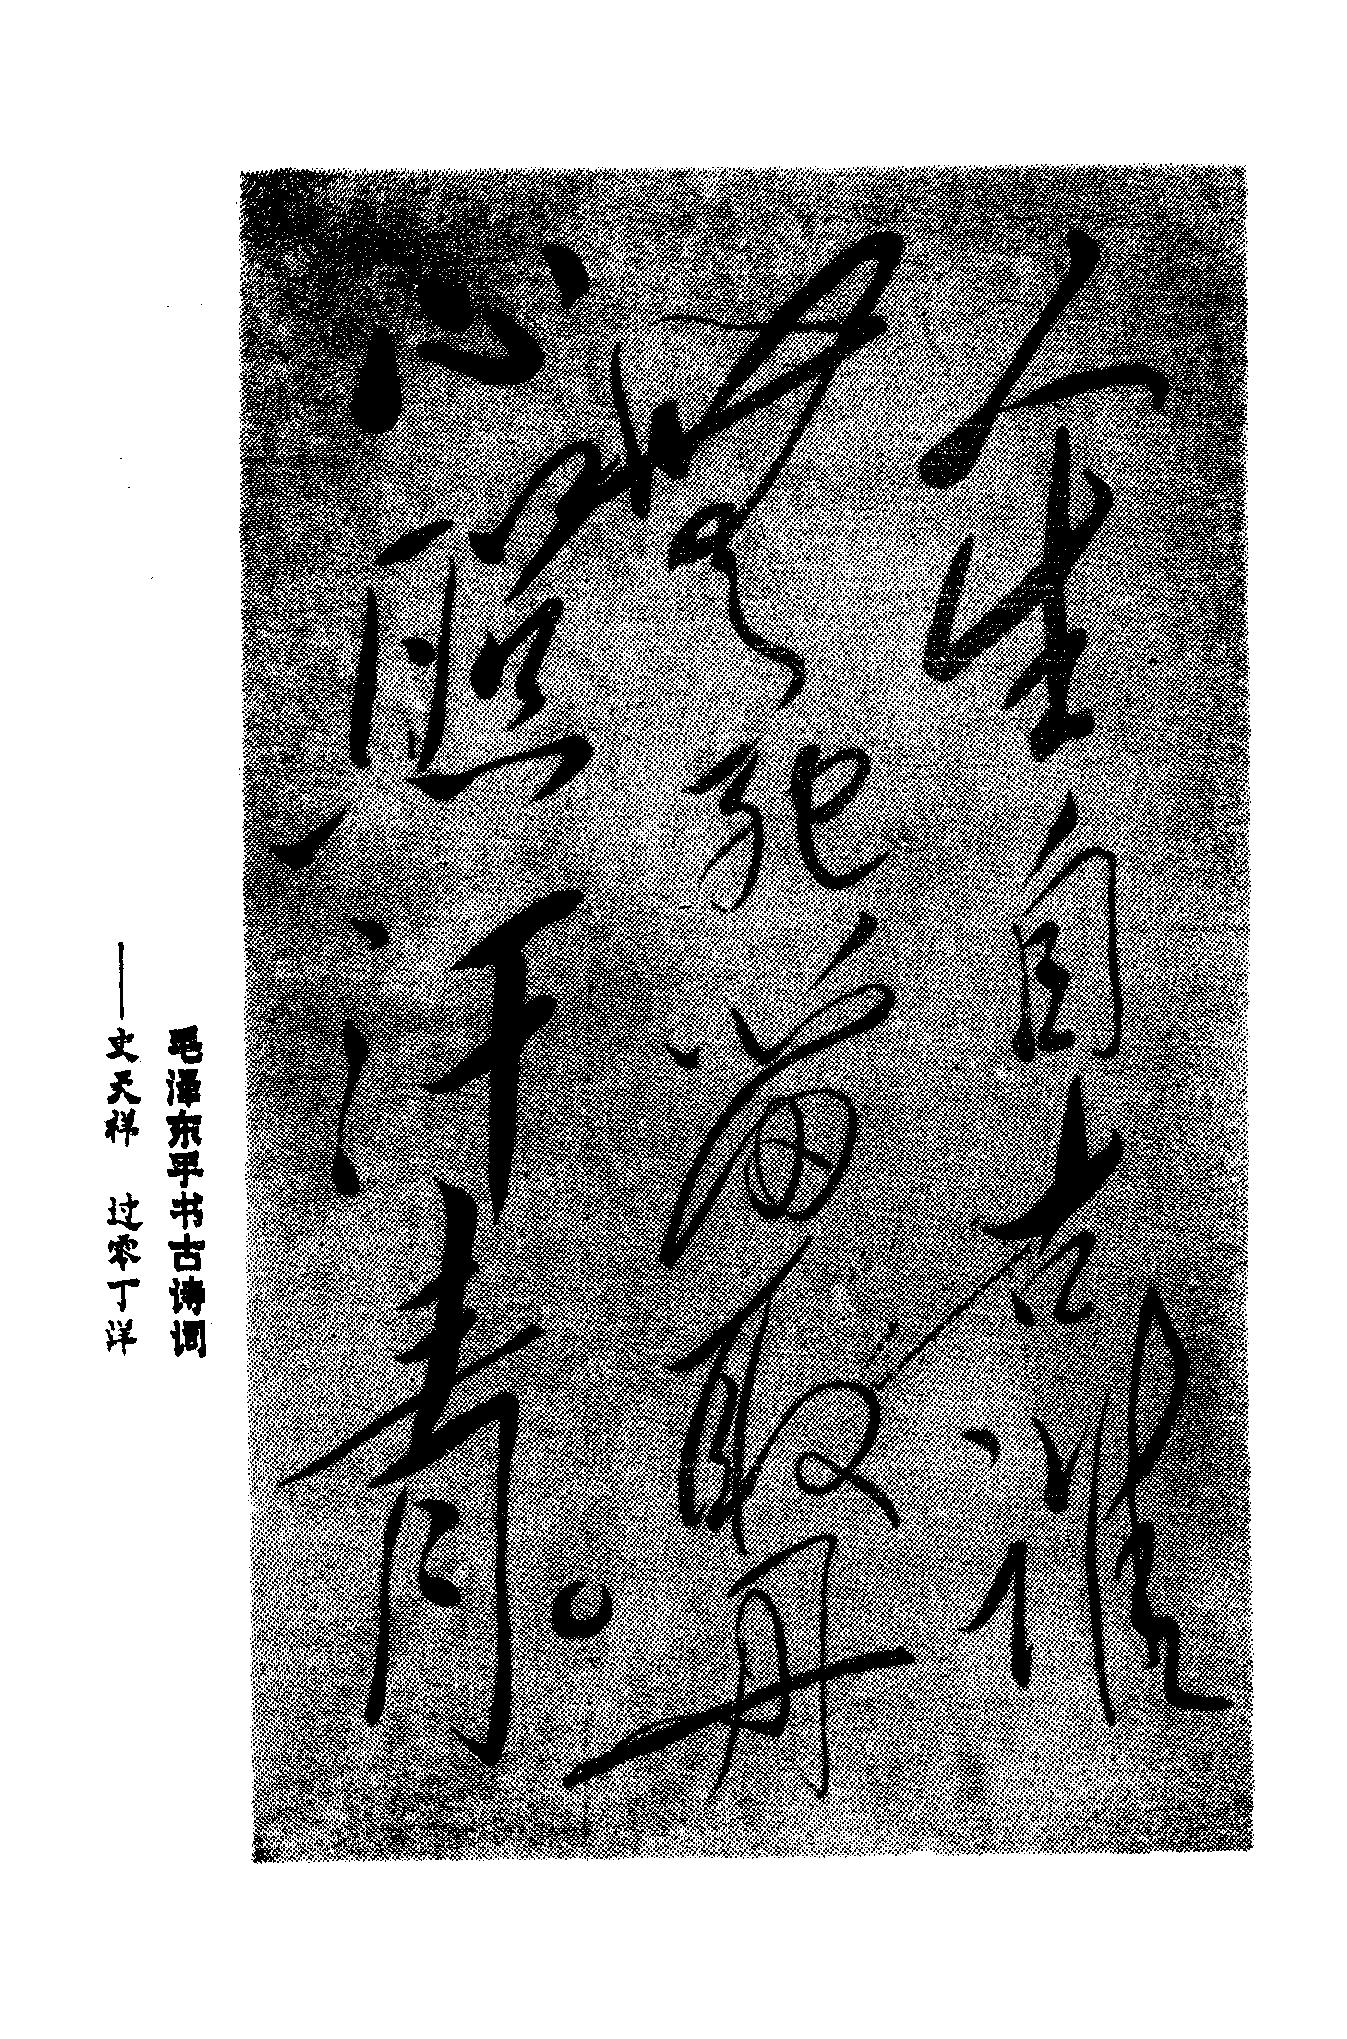 人生自古谁
无死留取丹
心照汗青。
毛泽东手书古诗词
——文天祥 过零丁洋